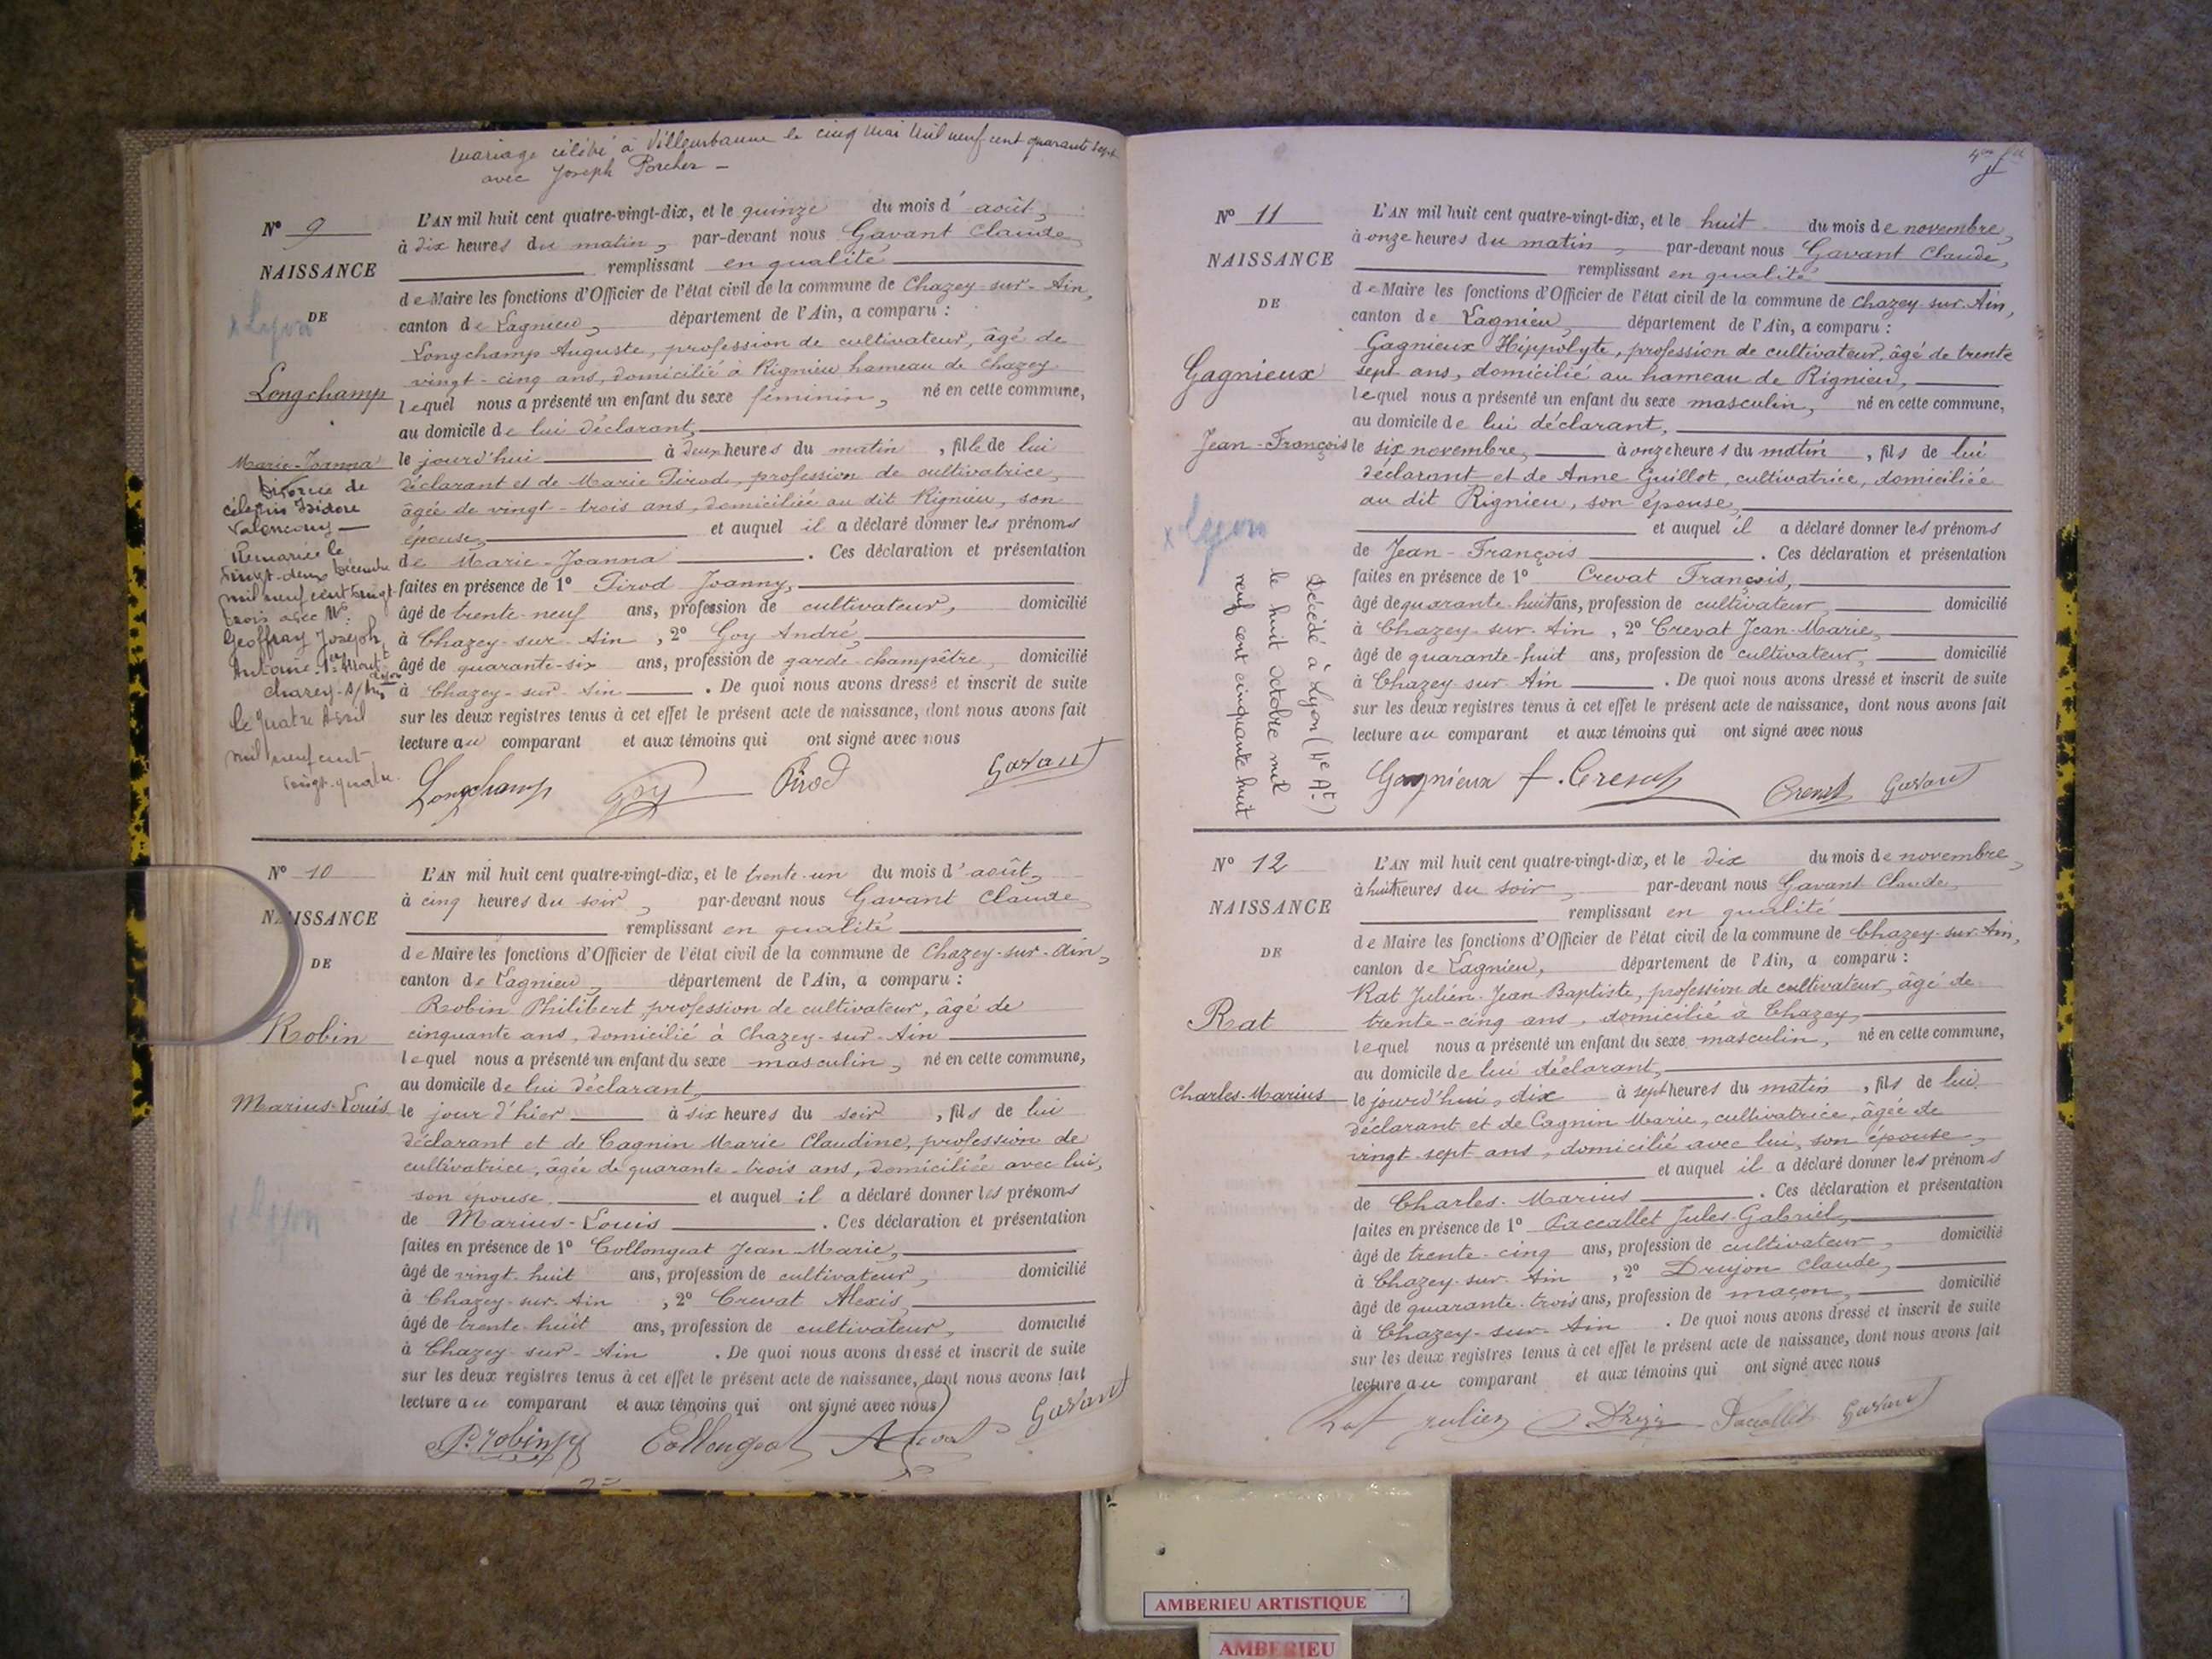 mariage célébré à Villeurbanne le cinq Mai Mil neuf cent quarante sept
avec Joseph Porcher –
N° 9
NAISSANCE
DE
x Lyon
Longchamp
Marie-Joanna
Divorcée de
célestin Isidore
Valencony —
Remariée le
vingt-deux Décembre
mil neuf cent vingt
trois avec Mr
Geoffray Joseph
Antoine
Chazey-s/Ain
le quatre Avril
mil neuf cent
vingt-quatre.
L'AN mil huit cent quatre-vingt-dix, et le quinze du mois d'août,
à dix heures du matin, par-devant nous Gavant Claude
remplissant en qualité
de Maire les fonctions d'Officier de l'état civil de la commune de Chazey-sur-Ain,
canton de Lagnieu, département de l'Ain, a comparu :
Longchamp Auguste, profession de cultivateur, âgé de
vingt-cinq ans, domicilié à Rignieu hameau de Chazey
lequel nous a présenté un enfant du sexe féminin, né en cette commune,
au domicile de lui déclarant,
le jourd'hui à deux heures du matin, fille de lui
déclarant et de Marie Pirod, profession de cultivatrice,
âgée de vingt-trois ans, domiciliée au dit Rignieu, son
épouse, et auquel il a déclaré donner les prénoms
de Marie-Joanna. Ces déclaration et présentation
faites en présence de 1° Pirod Joanny,
âgé de trente-neuf ans, profession de cultivateur, domicilié
à Chazey-sur-Ain, 2° Goy André,
âgé de quarante-six ans, profession de garde-champêtre, domicilié
à Chazey-sur-Ain. De quoi nous avons dressé et inscrit de suite
sur les deux registres tenus à cet effet le présent acte de naissance, dont nous avons fait
lecture au comparant et aux témoins qui ont signé avec nous
Longchamp Goy Pirod Gavant
N° 10
NAISSANCE
DE
Robin
Marius-Louis
x Lyon
L'AN mil huit cent quatre-vingt-dix, et le trente-un du mois d'août,
à cinq heures du soir, par-devant nous Gavant Claude
remplissant en qualité
de Maire les fonctions d'Officier de l'état civil de la commune de Chazey-sur-Ain,
canton de Lagnieu, département de l'Ain, a comparu :
Robin Philibert, profession de cultivateur, âgé de
cinquante ans, domicilié à Chazey-sur-Ain
lequel nous a présenté un enfant du sexe masculin, né en cette commune,
au domicile de lui déclarant,
le jour d'hier à six heures du soir, fils de lui
déclarant et de Cagnin Marie Claudine, profession de
cultivatrice, âgée de quarante-trois ans, domiciliée avec lui,
son épouse, et auquel il a déclaré donner les prénoms
de Marius-Louis. Ces déclaration et présentation
faites en présence de 1° Collongeat Jean-Marie,
âgé de vingt-huit ans, profession de cultivateur, domicilié
à Chazey-sur-Ain, 2° Crevat Alexis,
âgé de trente-huit ans, profession de cultivateur, domicilié
à Chazey-sur-Ain. De quoi nous avons dressé et inscrit de suite
sur les deux registres tenus à cet effet le présent acte de naissance, dont nous avons fait
lecture au comparant et aux témoins qui ont signé avec nous
P. robin Collongeat A Crevat Gavant
N° 11
NAISSANCE
DE
Gagnieux
Jean-François
x Lyon
Décédé à Lyon (4e At.)
le huit octobre mil
neuf cent cinquante huit
L'AN mil huit cent quatre-vingt-dix, et le huit du mois de novembre,
à onze heures du matin, par-devant nous Gavant Claude,
remplissant en qualité
de Maire les fonctions d'Officier de l'état civil de la commune de Chazey-sur-Ain,
canton de Lagnieu, département de l'Ain, a comparu :
Gagnieux Hippolyte, profession de cultivateur, âgé de trente
sept ans, domicilié au hameau de Rignieu,
lequel nous a présenté un enfant du sexe masculin, né en cette commune,
au domicile de lui déclarant,
le six novembre, à onze heures du matin, fils de lui
déclarant et de Anne Guillot, cultivatrice, domiciliée
au dit Rignieu, son épouse,
et auquel il a déclaré donner les prénoms
de Jean-François. Ces déclaration et présentation
faites en présence de 1° Crevat François,
âgé de quarante-huit ans, profession de cultivateur, domicilié
à Chazey-sur-Ain, 2° Crevat Jean-Marie,
âgé de quarante-huit ans, profession de cultivateur, domicilié
à Chazey-sur-Ain. De quoi nous avons dressé et inscrit de suite
sur les deux registres tenus à cet effet le présent acte de naissance, dont nous avons fait
lecture au comparant et aux témoins qui ont signé avec nous
Gagnieux f. Crevat Crevat Gavant
N° 12
NAISSANCE
DE
Rat
Charles-Marius
L'AN mil huit cent quatre-vingt-dix, et le dix du mois de novembre,
à huit heures du soir, par-devant nous Gavant Claude,
remplissant en qualité
de Maire les fonctions d'Officier de l'état civil de la commune de Chazey-sur-Ain,
canton de Lagnieu, département de l'Ain, a comparu :
Rat Julien-Jean-Baptiste, profession de cultivateur, âgé de
trente-cinq ans, domicilié à Chazey,
lequel nous a présenté un enfant du sexe masculin, né en cette commune,
au domicile de lui déclarant,
le jourd'hui, dix à sept heures du matin, fils de lui
déclarant et de Cagnin Marie, cultivatrice, âgée de
vingt-sept ans, domicilié avec lui, son épouse,
et auquel il a déclaré donner les prénoms
de Charles-Marius. Ces déclaration et présentation
faites en présence de 1° Paccallet Jules-Gabriel,
âgé de trente-cinq ans, profession de cultivateur, domicilié
à Chazey-sur-Ain, 2° Drujon Claude,
âgé de quarante-trois ans, profession de maçon, domicilié
à Chazey-sur-Ain. De quoi nous avons dressé et inscrit de suite
sur les deux registres tenus à cet effet le présent acte de naissance, dont nous avons fait
lecture au comparant et aux témoins qui ont signé avec nous
Rat julien Paccallet Gavant
AMBERIEU ARTISTIQUE
AMBERIEU